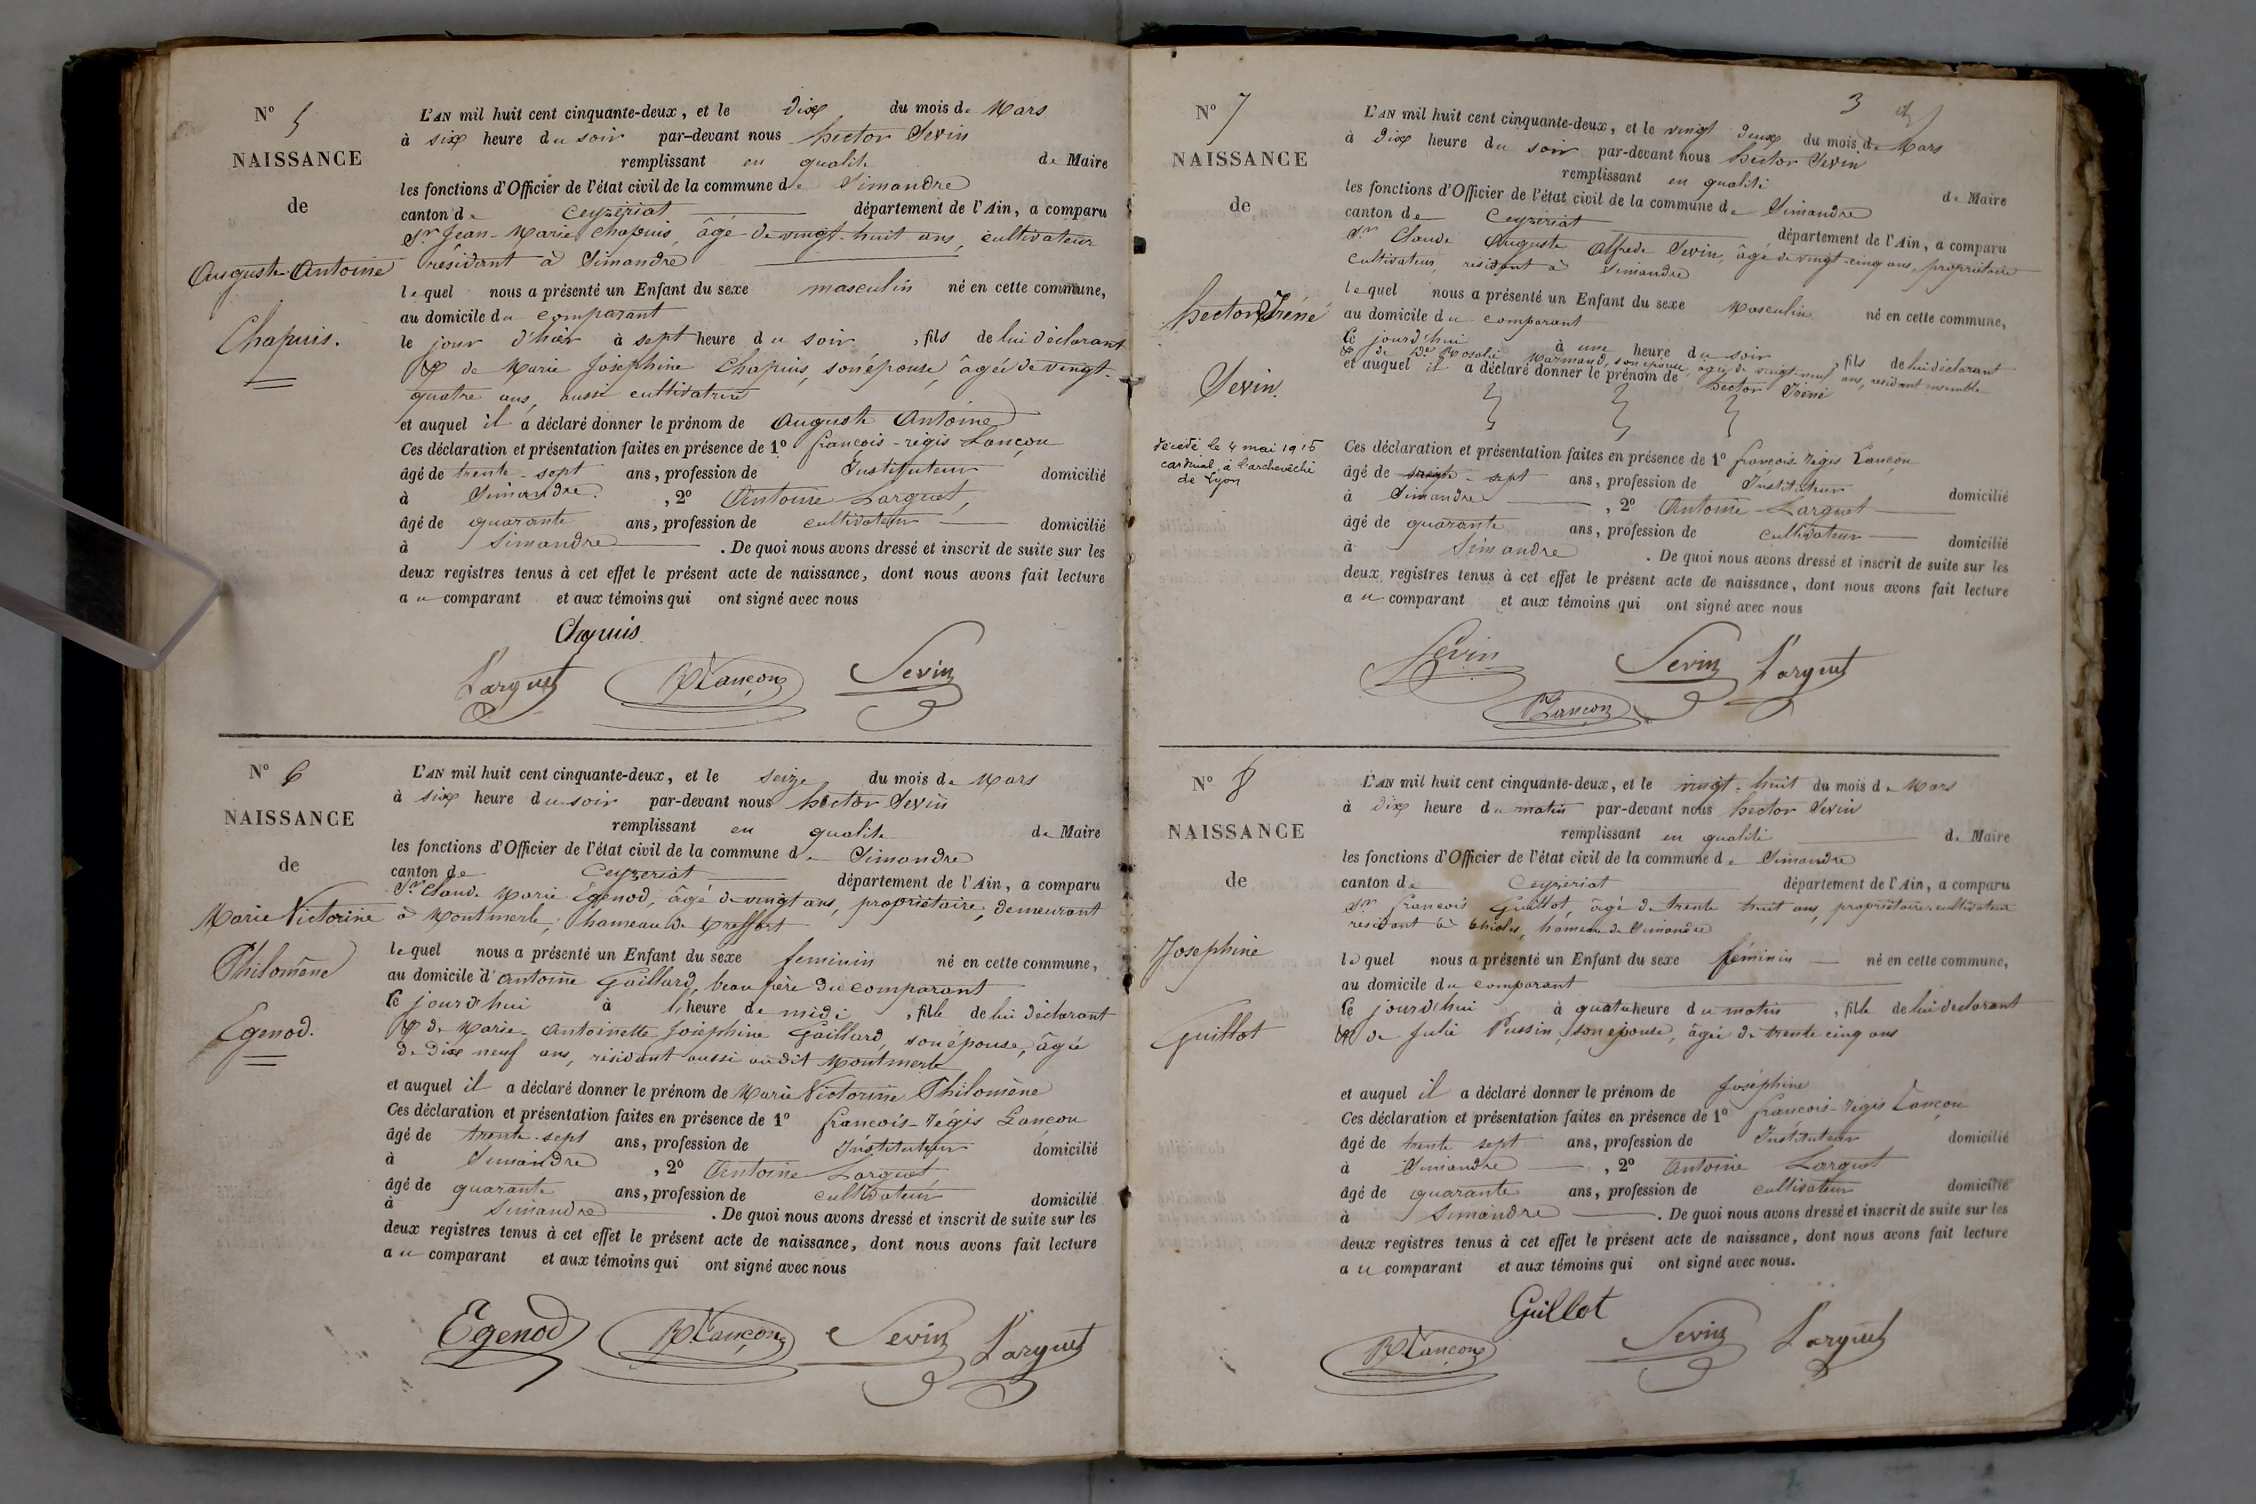 N° 5
NAISSANCE
de
Auguste Antoine
Chapuis.
L'AN mil huit cent cinquante-deux, et le dix du mois de Mars
à six heure du soir par-devant nous hector Sevin
remplissant en qualité de Maire
les fonctions d'Officier de l'état civil de la commune de Simandre
canton de Ceyzeriat département de l'Ain, a comparu
Sr Jean-Marie Chapuis, âgé de vingt-huit ans, cultivateur
résidant à Simandre
lequel nous a présenté un Enfant du sexe masculin né en cette commune,
au domicile du comparant
le jour d'hier à sept heure du soir, fils de lui déclarant
& de Marie Josephine Chapuis, son épouse, âgée de vingt-
quatre ans, aussi cultivatrice
et auquel il a déclaré donner le prénom de Auguste Antoine
Ces déclaration et présentation faites en présence de 1° françois-régis Lançon
âgé de trente-sept ans, profession de Instituteur domicilié
à Simandre, 2° Antoine Larguet,
âgé de quarante ans, profession de cultivateur domicilié
à Simandre. De quoi nous avons dressé et inscrit de suite sur les
deux registres tenus à cet effet le présent acte de naissance, dont nous avons fait lecture
au comparant et aux témoins qui ont signé avec nous
Chapuis
Larguet RLançon Sevin
N° 6
NAISSANCE
de
Marie Victorine
Philomène
Egenod.
L'AN mil huit cent cinquante-deux, et le seize du mois de Mars
à six heure du soir par-devant nous hector Sevin
remplissant en qualité de Maire
les fonctions d'Officier de l'état civil de la commune de Simandre
canton de Ceyzeriat département de l'Ain, a comparu
Sr Claude Marie Egenod, âgé de vingt ans, propriétaire, demeurant
à Montmerle, hameau de Treffort
lequel nous a présenté un Enfant du sexe feminin né en cette commune,
au domicile d'Antoine Gaillard, beau père du comparant
le jourd'hui à heure de midi, fille de lui déclarant
& de Marie-Antoinette Joséphine Gaillard, son épouse, âgée
de dix neuf ans, résidant aussi au dit Montmerle
et auquel il a déclaré donner le prénom de Marie Victorine Philomène
Ces déclaration et présentation faites en présence de 1° françois-régis Lançon
âgé de trente-sept ans, profession de Instituteur domicilié
à Simandre, 2° Antoine Larguet
âgé de quarante ans, profession de cultivateur domicilié
à Simandre. De quoi nous avons dressé et inscrit de suite sur les
deux registres tenus à cet effet le présent acte de naissance, dont nous avons fait lecture
au comparant et aux témoins qui ont signé avec nous
Egenod RLançon Sevin Larguet
3
N° 7
NAISSANCE
de
hector Iréné
Sevin.
décédé le 4 mai 1916
cardinal à l'archevêché
de Lyon
L'AN mil huit cent cinquante-deux, et le vingt deux du mois de Mars
à dix heure du soir par-devant nous hector Sevin
remplissant en qualité de Maire
les fonctions d'Officier de l'état civil de la commune de Simandre
canton de Ceyzeriat département de l'Ain, a comparu
Sr Claude Auguste Alfrede Sevin, âgé de vingt-cinq ans, propriétaire
cultivateur, residant à Simandre
lequel nous a présenté un Enfant du sexe Masculin né en cette commune,
au domicile du comparant
le jourd'hui à une heure du soir, fils de lui déclarant
& de De Rosalie Marmand, son épouse, âgée de vingt-neuf ans, residant ensemble
et auquel il a déclaré donner le prénom de hector Iréné
Ces déclaration et présentation faites en présence de 1° françois régis Lançon
âgé de trente-sept ans, profession de Instituteur domicilié
à Simandre, 2° Antoine Larguet
âgé de quarante ans, profession de cultivateur domicilié
à Simandre. De quoi nous avons dressé et inscrit de suite sur les
deux registres tenus à cet effet le présent acte de naissance, dont nous avons fait lecture
au comparant et aux témoins qui ont signé avec nous
Sevin Sevin Larguet
RLançon
N° 8
NAISSANCE
de
Josephine
Guillot
L'AN mil huit cent cinquante-deux, et le vingt-huit du mois de Mars
à dix heure du matin par-devant nous hector Sevin
remplissant en qualité de Maire
les fonctions d'Officier de l'état civil de la commune de Simandre
canton de Ceyzeriat département de l'Ain, a comparu
Sr françois Guillot, âgé de trente huit ans, propriétaire cultivateur
residant à Thioles, hameau de Simandre
lequel nous a présenté un Enfant du sexe féminin né en cette commune,
au domicile du comparant
le jourd'hui à quatre heure du matin, fille de lui déclarant
& de Julie Pussin, son épouse, âgée de trente cinq ans
et auquel il a déclaré donner le prénom de Joséphine
Ces déclaration et présentation faites en présence de 1° françois-régis Lançon
âgé de trente sept ans, profession de Instituteur domicilié
à Simandre, 2° Antoine Larguet
âgé de quarante ans, profession de cultivateur domicilié
à Simandre. De quoi nous avons dressé et inscrit de suite sur les
deux registres tenus à cet effet le présent acte de naissance, dont nous avons fait lecture
au comparant et aux témoins qui ont signé avec nous.
Guillot
RLançon Sevin Larguet